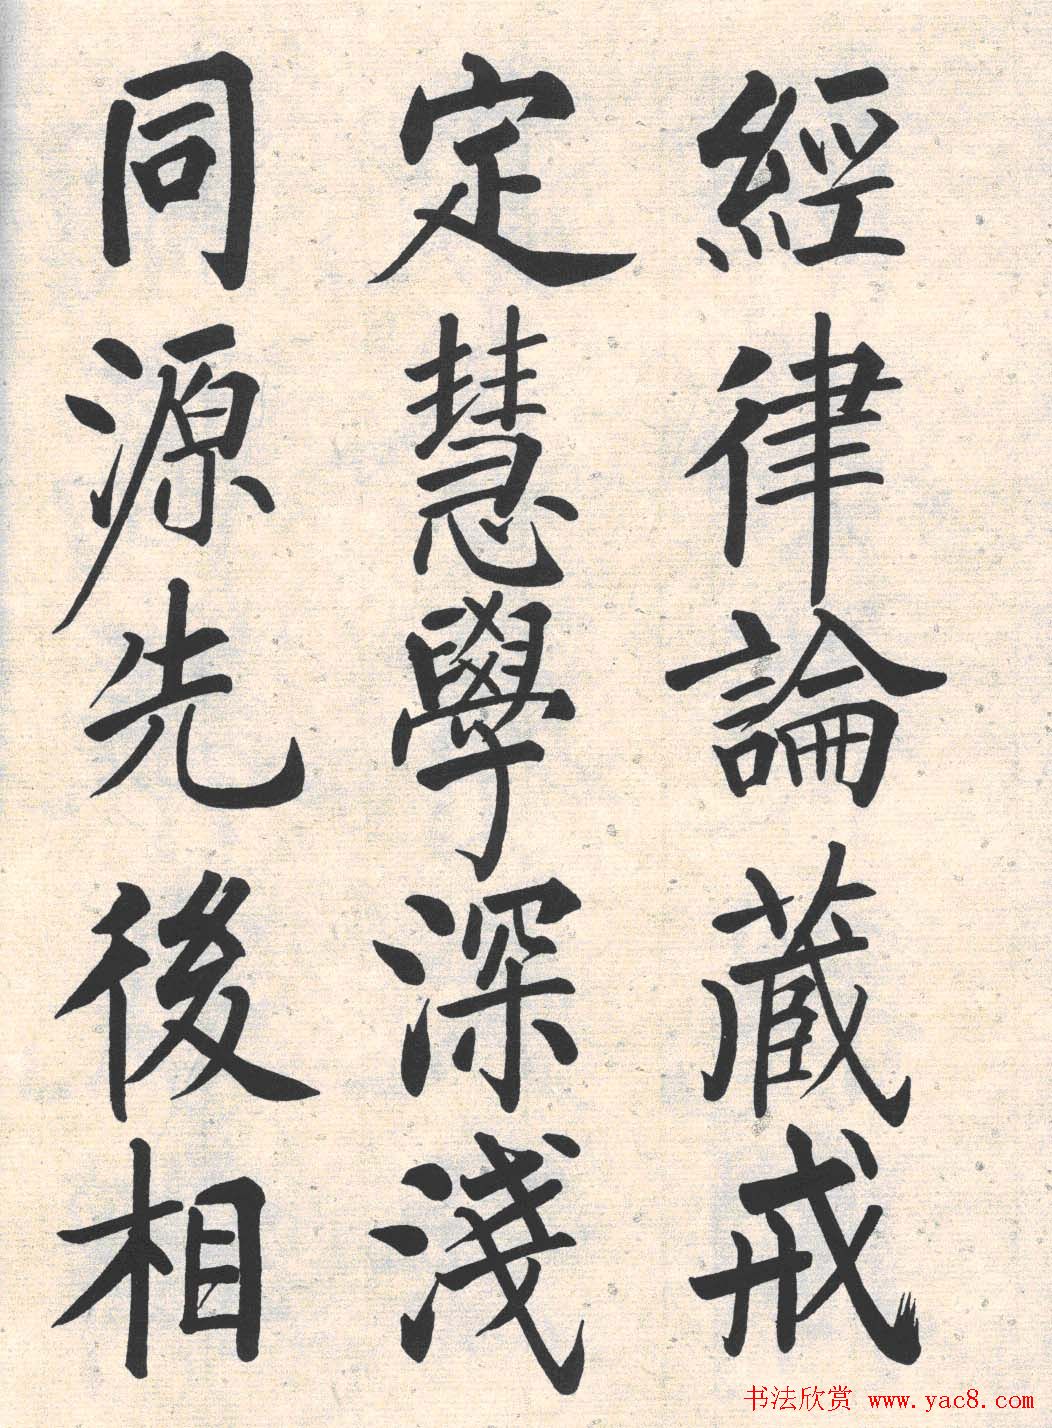 經律論藏戒
定慧學深淺
同源先後相
书法欣赏 www.yac8.com